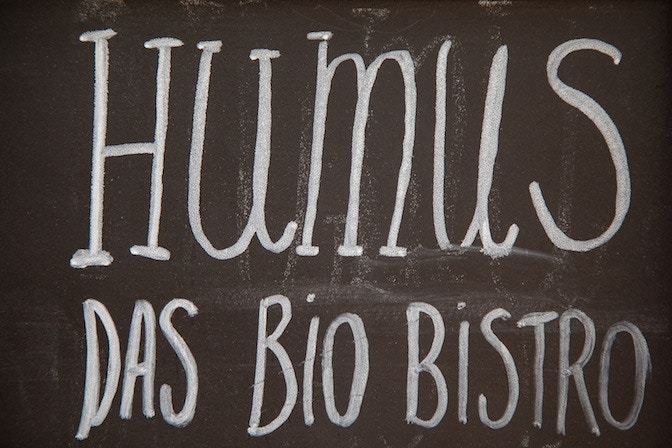 Humus
DAS BiO BiSTRO